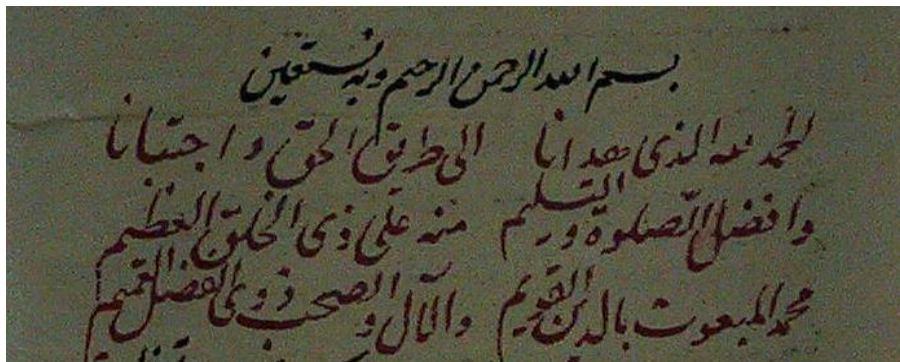 بسم الله الرحمن الرحيم وبه نستعين
الحمد لله الذى هدانا الى طريق الحق واجتبانا
وافضل الصلوة والتسليم منه على ذى الخلق العظيم
محمد المبعوث بالدين القويم والآل والصحب ذوى الفضل العميم